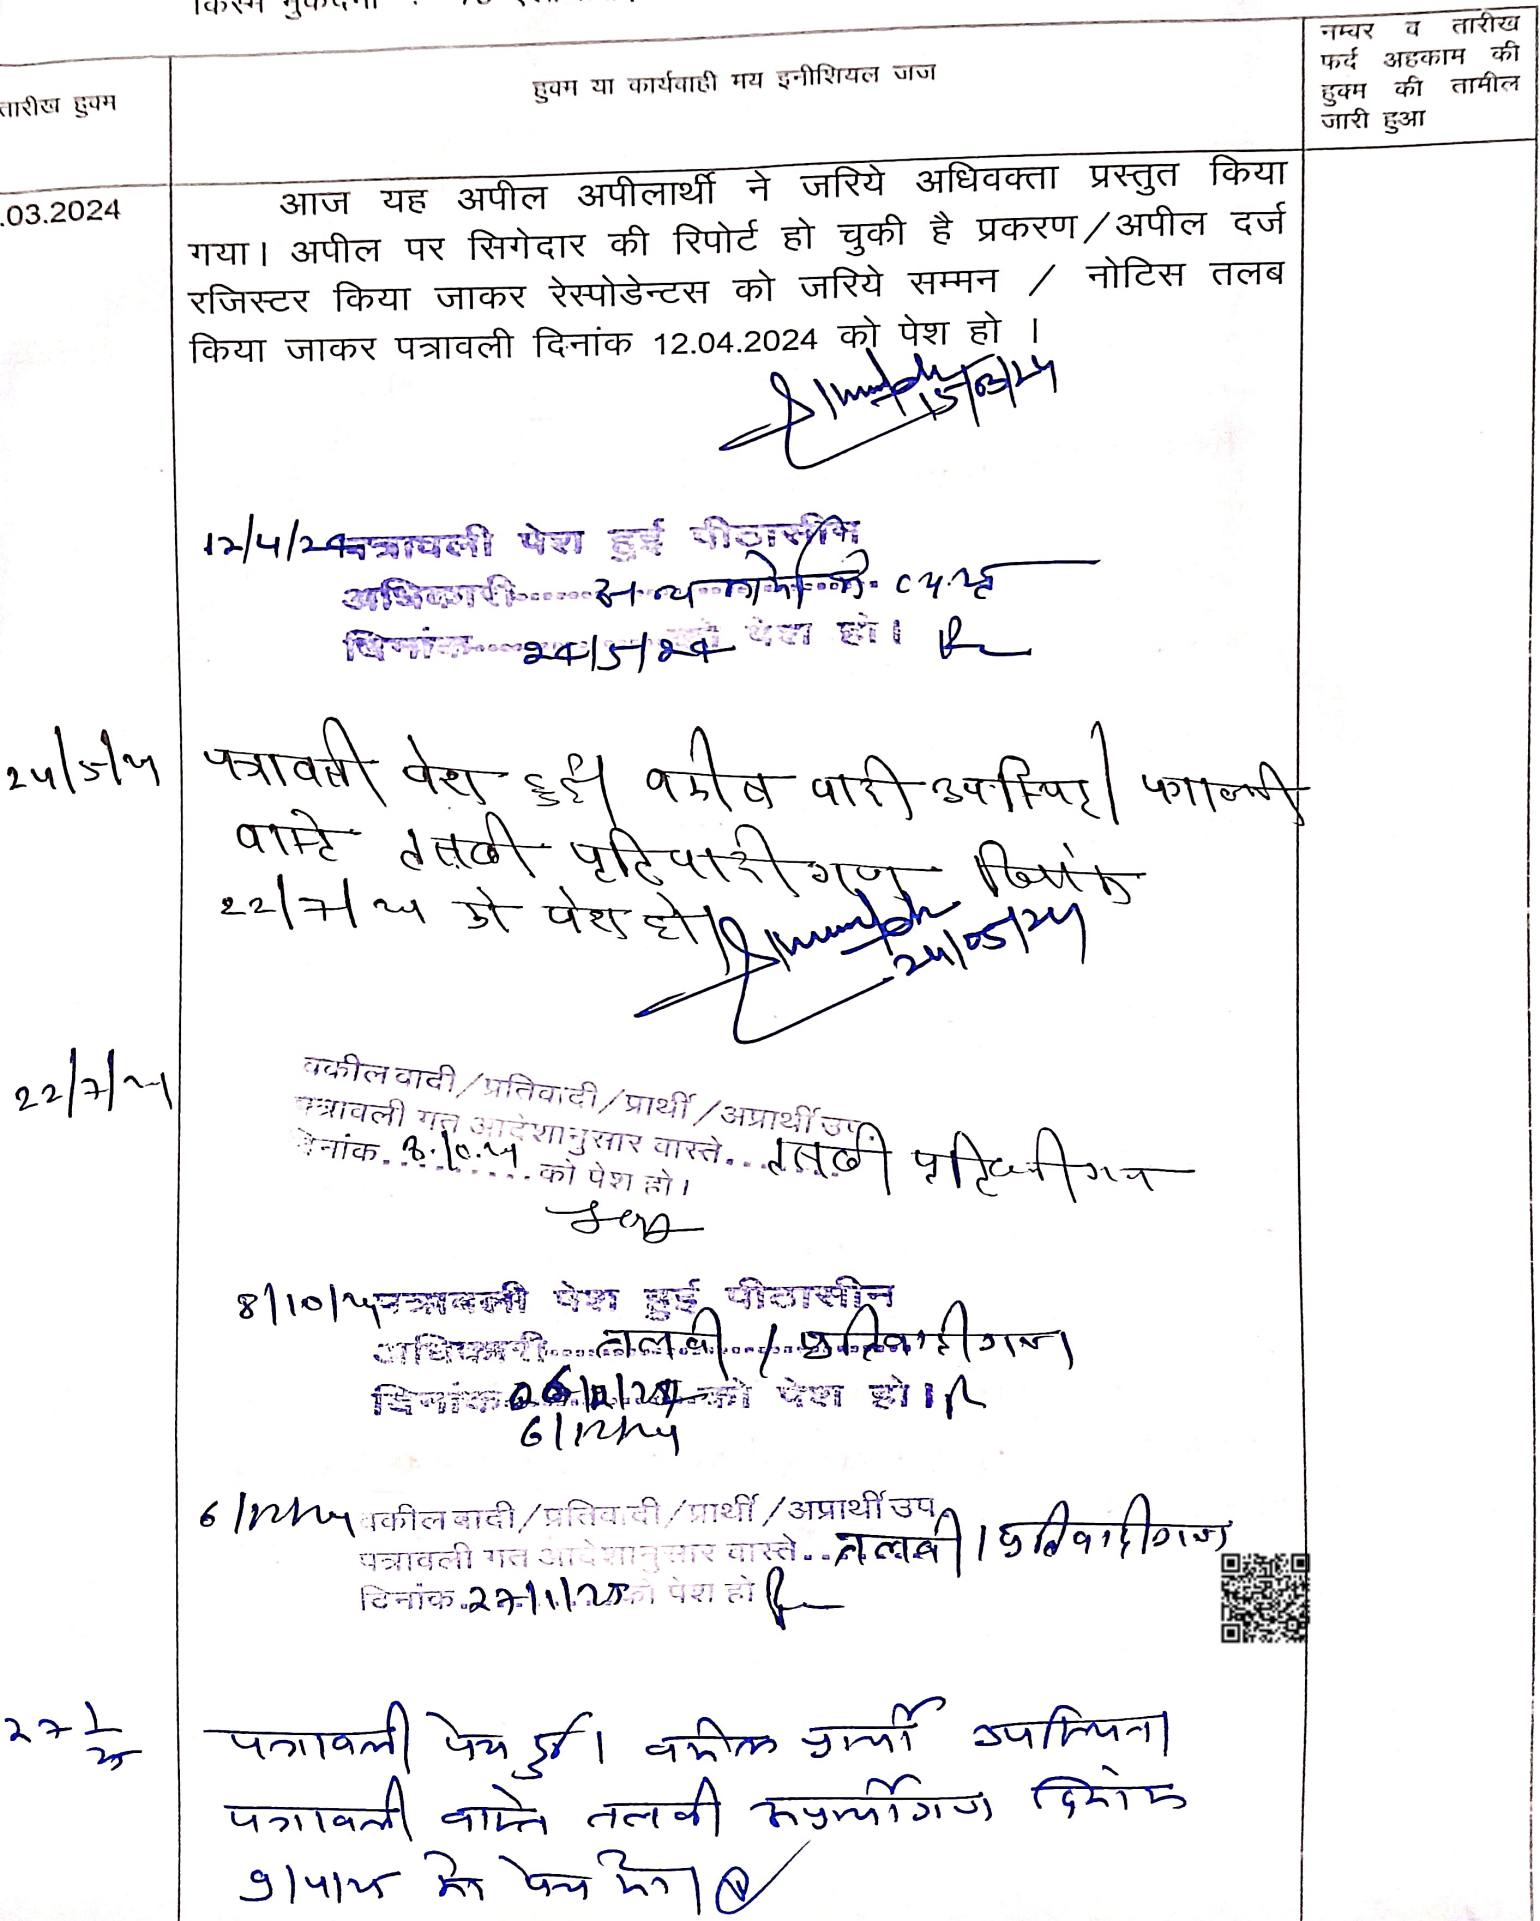 तारीख हुक्म
हुक्म या कार्यवाही मय इनीशियल जज
नम्बर व तारीख
फर्द अहकाम की
हुक्म की तामील
जारी हुआ
.03.2024
आज यह अपील अपीलार्थी ने जरिये अधिवक्ता प्रस्तुत किया
गया। अपील पर सिगेदार की रिपोर्ट हो चुकी है प्रकरण/अपील दर्ज
रजिस्टर किया जाकर रेस्पोडेन्टस को जरिये सम्मन / नोटिस तलब
किया जाकर पत्रावली दिनांक 12.04.2024 को पेश हो ।
15/03/24
12/4/24 पत्रावली पेश हुई पीठासीन
अधिकारी अन्य कार्यों में
दिनांक 24/5/24 को पेश हो।
24/5/24 पत्रावली पेश हुई। वकील वादी उपस्थित। पत्रावली
वास्ते तलबी प्रतिवादीगण दिनांक
22/7/24 को पेश हो।
24/05/24
22/7/24 वकील वादी/प्रतिवादी/प्रार्थी/अप्रार्थी उप.
पत्रावली गत आदेशानुसार वास्ते तलबी प्रतिवादीगण
दिनांक 8.10.24 को पेश हो।
8/10/24 पत्रावली पेश हुई पीठासीन
अधिकारी तलबी / प्रतिवादीगण
दिनांक को पेश हो।
6/12/24
6/12/24 वकील वादी/प्रतिवादी/प्रार्थी/अप्रार्थी उप.
पत्रावली गत आदेशानुसार वास्ते तलबी / प्रतिवादीगण
दिनांक 27/1/25 को पेश हो
27 1/25 पत्रावली पेश हुई। वकील प्रार्थी उपस्थित।
पत्रावली वास्ते तलबी अप्रार्थीगण दिनांक
9/4/25 को पेश हो।